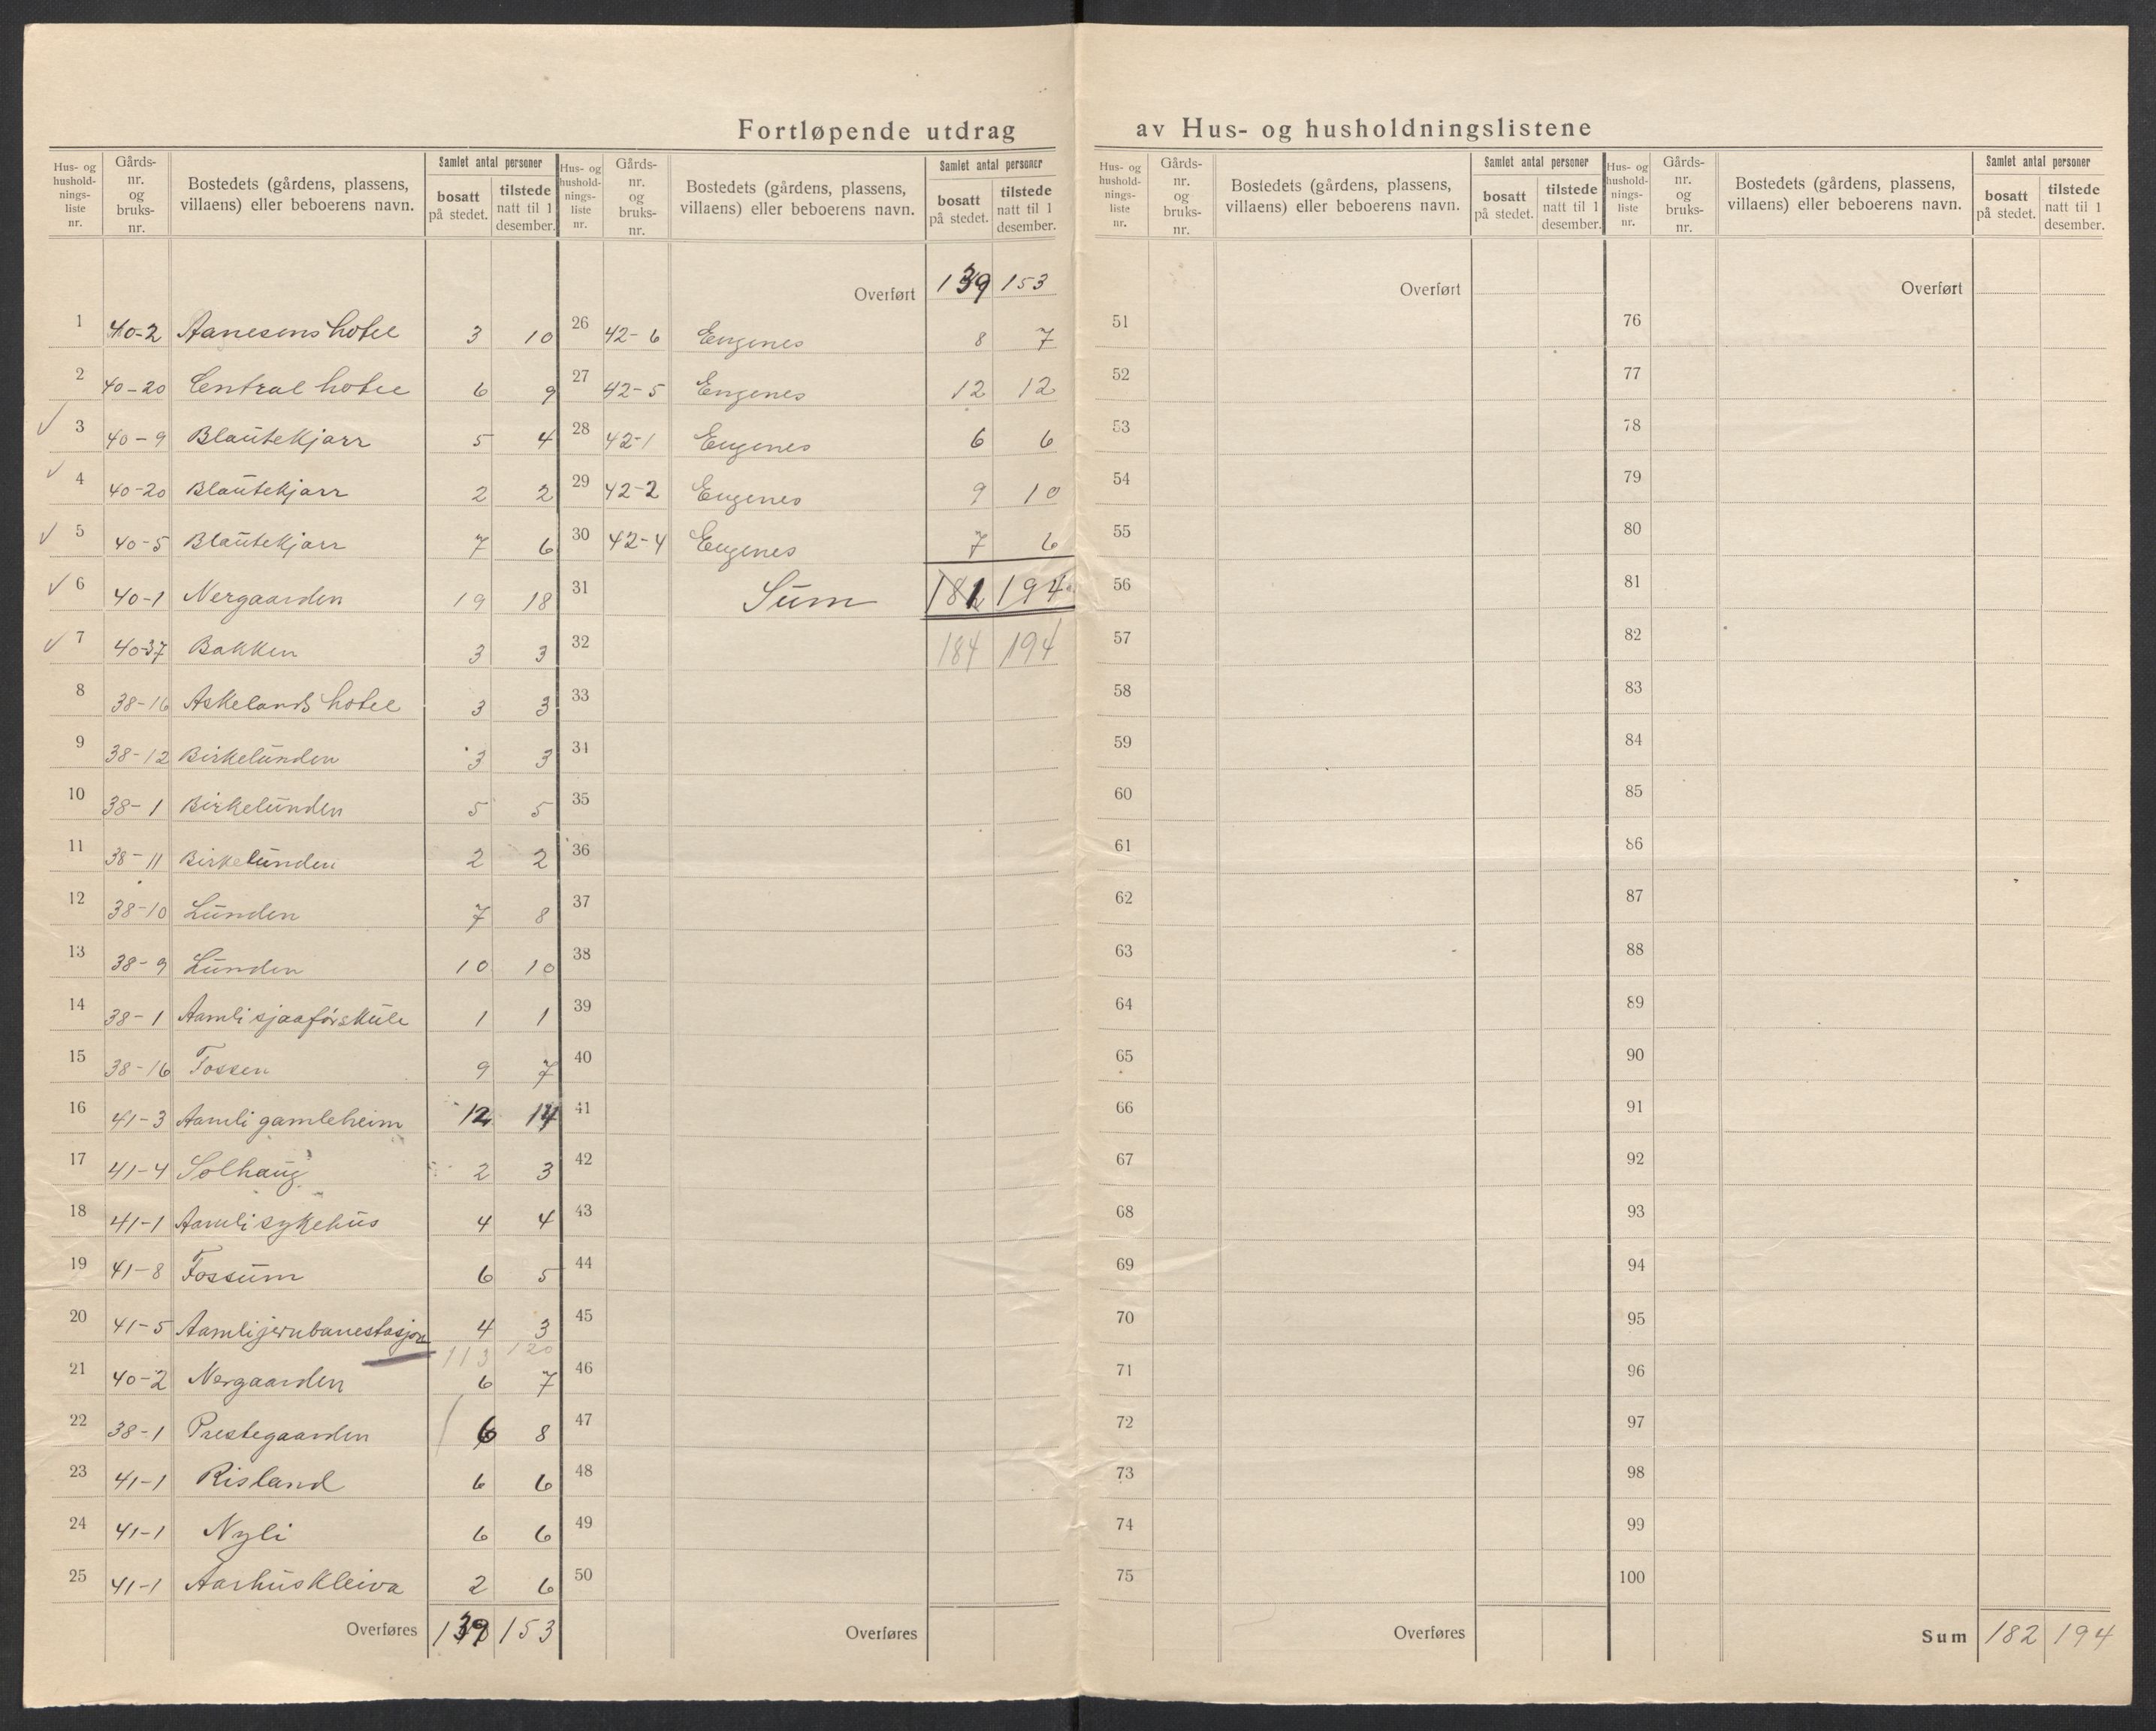 Fortløpende utdrag av Hus- og husholdningslistene
Hus- og hushold- nings- liste nr. | Gårds- nr. og bruks- nr. | Bostedets (gårdens, plassens, villaens) eller beboerens navn. | Samlet antal personer | bosatt på stedet. | tilstede natt til 1 desember.
1 40-2 Aanesens hotel 3 10
2 40-20 Central hotel 6 9
✓ 3 40-9 Blautekjarr 5 4
✓ 4 40-20 Blautekjarr 2 2
✓ 5 40-5 Blautekjarr 7 6
✓ 6 40-1 Nergaarden 19 18
✓ 7 40-37 Bakken 3 3
8 38-16 Askelands hotel 3 3
9 38-12 Birkelunden 3 3
10 38-1 Birkelunden 5 5
11 38-11 Birkelunden 2 2
12 38-10 Lunden 7 8
13 38-9 Lunden 10 10
14 38-1 Aamli sjaaførskule 1 1
15 38-16 Fossen 9 7
16 41-3 Aamli gamleheim 12 14
17 41-4 Solhaug 2 3
18 41-1 Aamli sykehus 4 4
19 41-8 Fossum 6 5
20 41-5 Aamli jernbanestasjon 4 3
113 120
21 40-2 Nergaarden 6 7
22 38-1 Prestegaarden 6 8
23 41-1 Risland 6 6
24 41-1 Nyli 6 6
25 41-1 Aarhuskleiva 2 6
Overføres 139 153
Hus- og hushold- nings- liste nr. | Gårds- nr. og bruks- nr. | Bostedets (gårdens, plassens, villaens) eller beboerens navn. | Samlet antal personer | bosatt på stedet. | tilstede natt til 1 desember.
Overført 139 153
26 42-6 Engenes 8 7
27 42-5 Engenes 12 12
28 42-1 Engenes 6 6
29 42-2 Engenes 9 10
30 42-4 Engenes 7 6
31 Sum 181 194
32 184 194
33
34
35
36
37
38
39
40
41
42
43
44
45
46
47
48
49
50
Overføres
Hus- og hushold- nings- liste nr. | Gårds- nr. og bruks- nr. | Bostedets (gårdens, plassens, villaens) eller beboerens navn. | Samlet antal personer | bosatt på stedet. | tilstede natt til 1 desember.
Overført
51
52
53
54
55
56
57
58
59
60
61
62
63
64
65
66
67
68
69
70
71
72
73
74
75
Overføres
Hus- og hushold- nings- liste nr. | Gårds- nr. og bruks- nr. | Bostedets (gårdens, plassens, villaens) eller beboerens navn. | Samlet antal personer | bosatt på stedet. | tilstede natt til 1 desember.
Overført
76
77
78
79
80
81
82
83
84
85
86
87
88
89
90
91
92
93
94
95
96
97
98
99
100
Sum 182 194